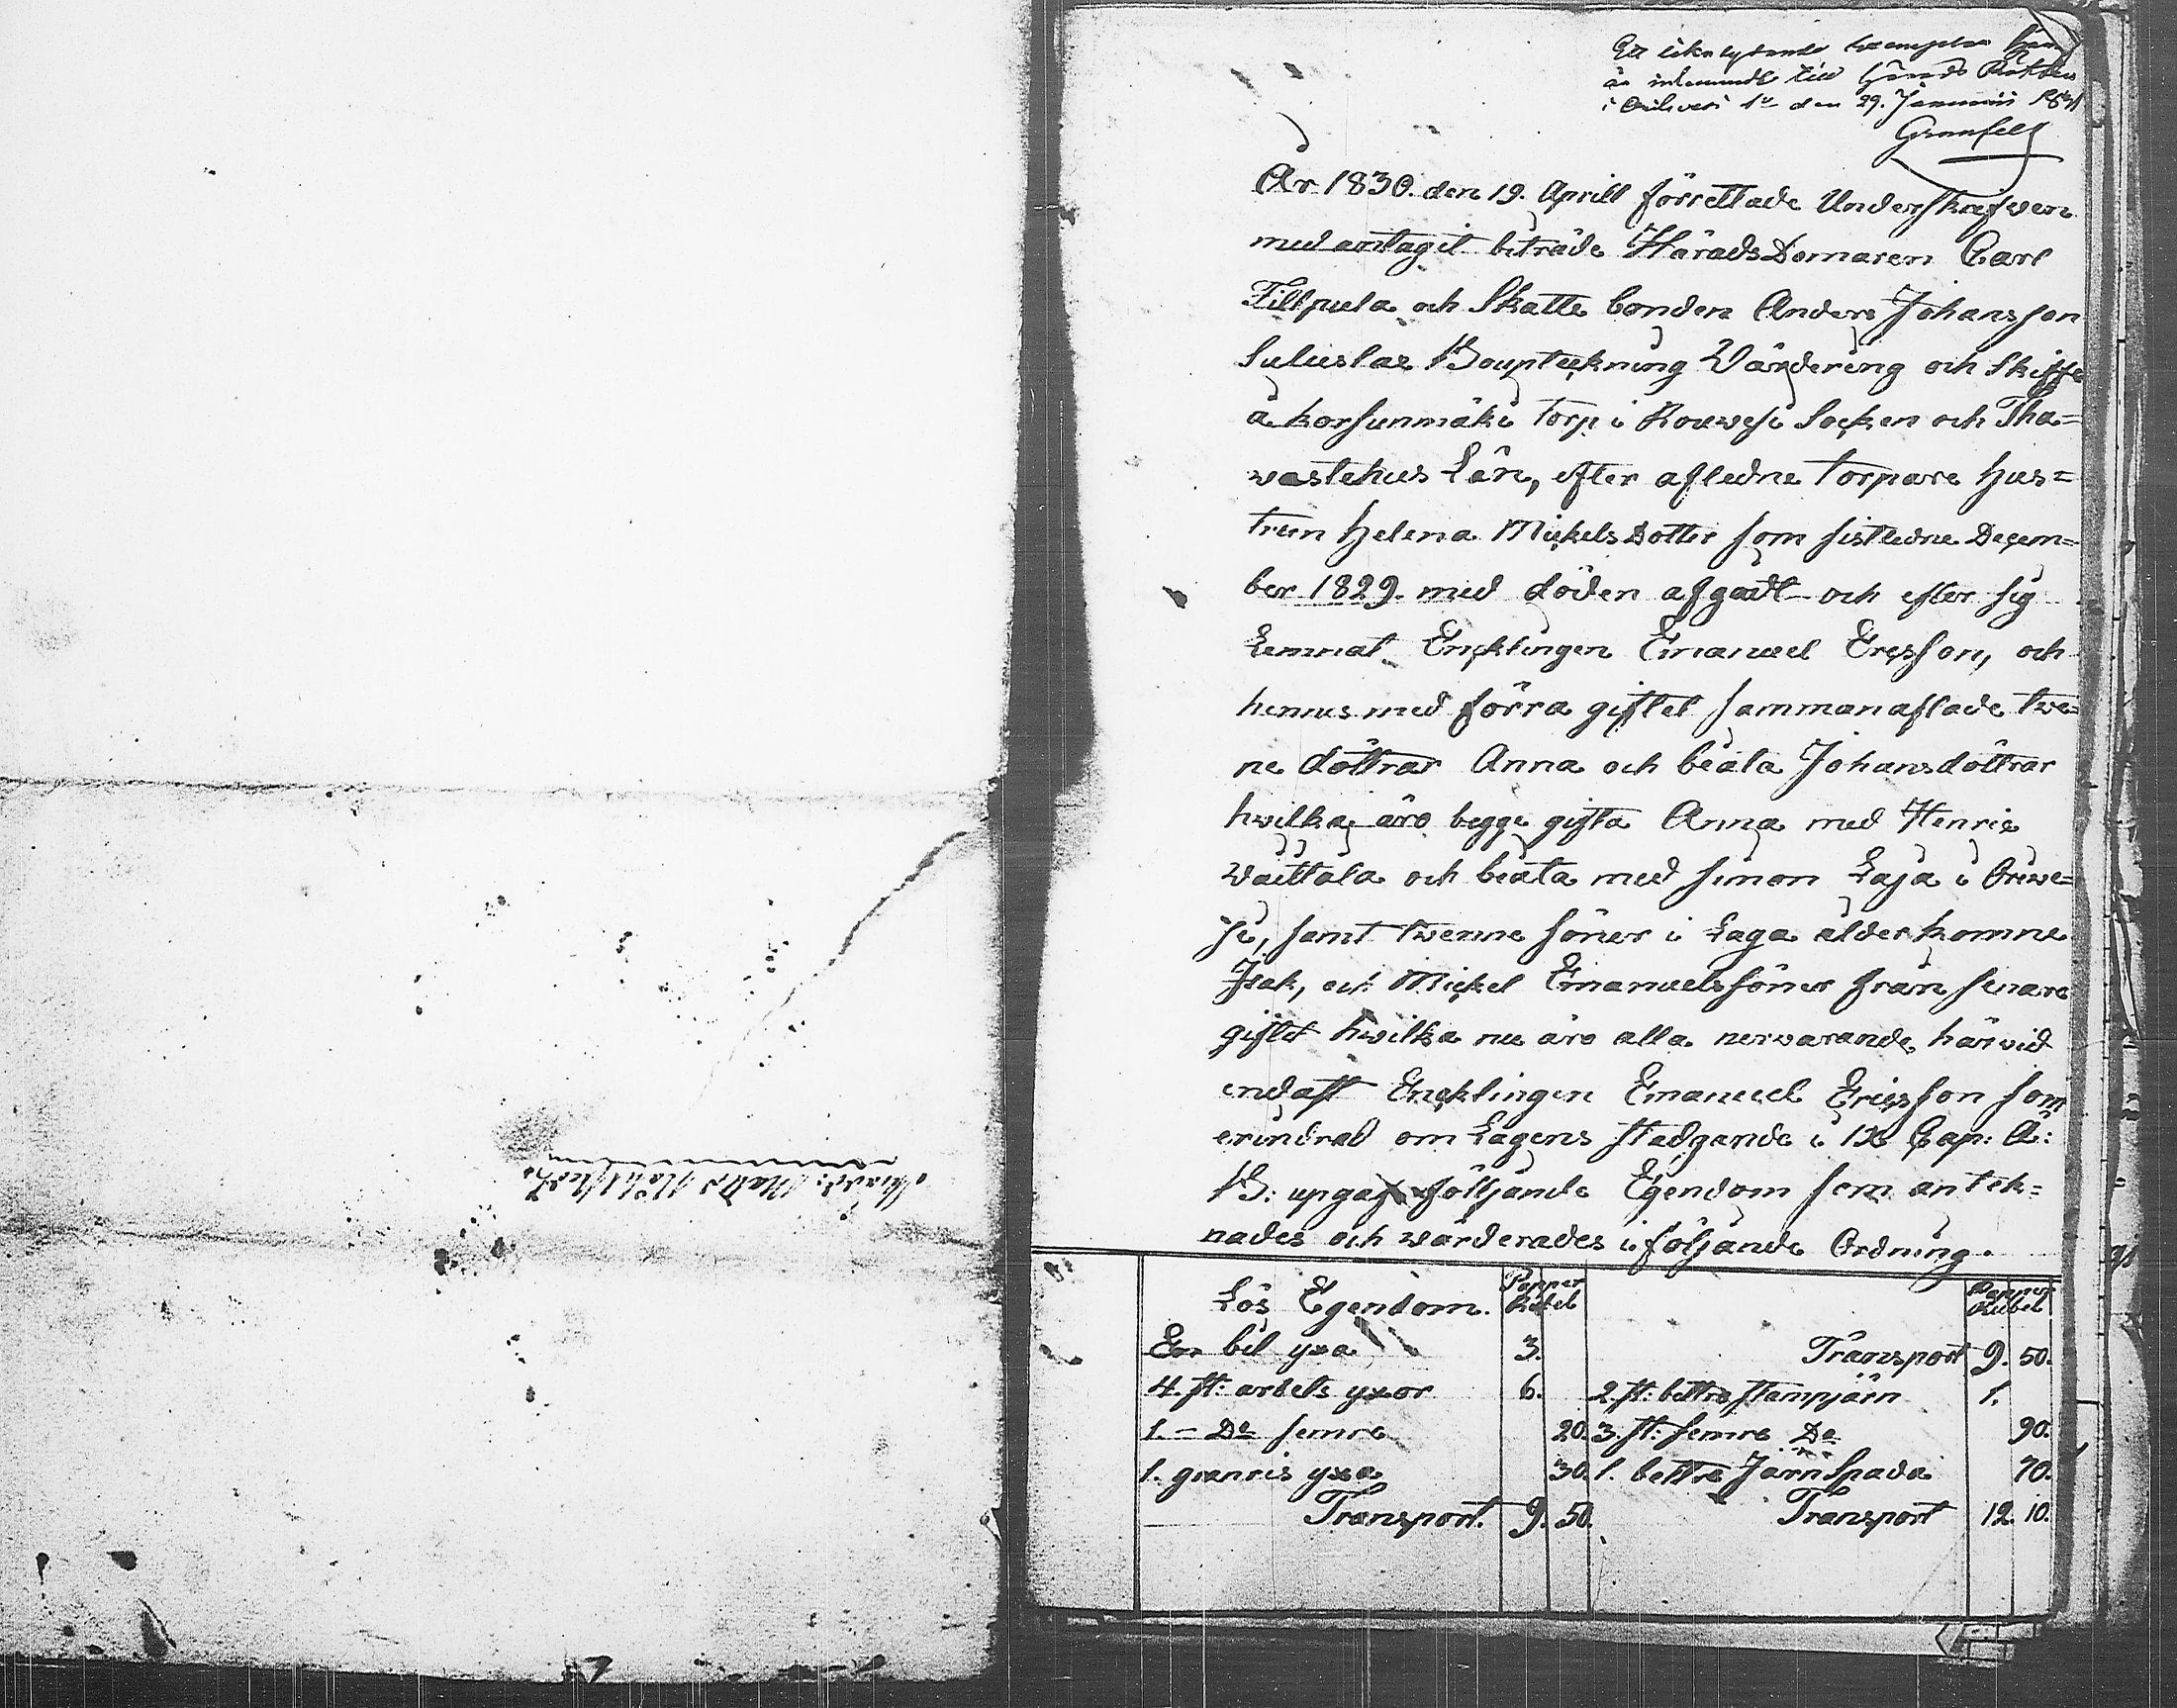 Ett lika lydande exemplar
är inlemnadt till Härads Rätten
i Orihvesi den 29. Januarii
Granfelt
År 1830. den 19. Aprill förrettade Underskrefven
med antagit biträde HäradsDomaren Carl
Tillpula och Skatte bonden Anders Johansson
Bouptekning Värdering och Skifte
å korsunmäki torp i Rouwesi Socken och Tha=
vastehus Län, efter afledne torpare hus=
trun Helena MickelsDotter som sistledne Decem=
ber 1829. med döden afgådt och efter sig
Lemnat Encklingen Emanuel Ericsson, och
hennes med förra giftet sammanaflade twe=
ne döttrar Anna och beata Johansdöttrar
hwilka äro begge gifta Anna med Henric
Waittala och beata med Simon Laja i Oriwe=
si, samt twenne söner i Laga ålder komne
Isak, och Mickel Emanuelssöner från senare
giftet hwilka nu äro alla nervarande, härvid
endast Encklingen Emanuel Ericsson som
erindrad om Lagens stadgande i IX Cap: Ä:
B: upgaf följande Egendom som antek=
nades och värderades i följande Ordning.
Lös Egendom. Papper Rubel
En bil yxa 3.
4. st: arbets yxor 6.
1. – Do semre 20.
1. granris yxa 30.
Transport. 9. 50.
Papper Rubel
Transport 9. 50.
2. st: bettre stampjärn 1.
3. st: semre Do 90.
1. bettre Järn Spada 70.
Transport 12. 10.